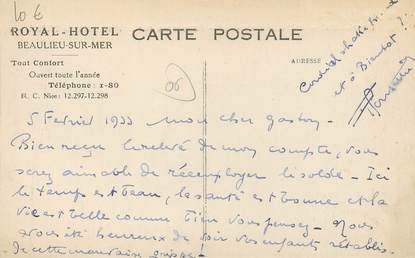 10 €
ROYAL-HOTEL
BEAULIEU-SUR-MER
CARTE POSTALE
Tout Confort
Ouvert toute l'année
Téléphone: 1-80
R. C. Nice: 12.297-12.298
ADRESSE
et à Bientôt !
5 Fevrier 1933 mon cher gaston,
Bien reçu le relevé de mon compte, vous
serez aimable de réemployer le solde - Ici
le temps est beau, la santé est bonne et la
vie est belle comme bien vous pensez - Nous
avons été heureux de voir vos enfants rétablis
de cette mauvaise grippe -